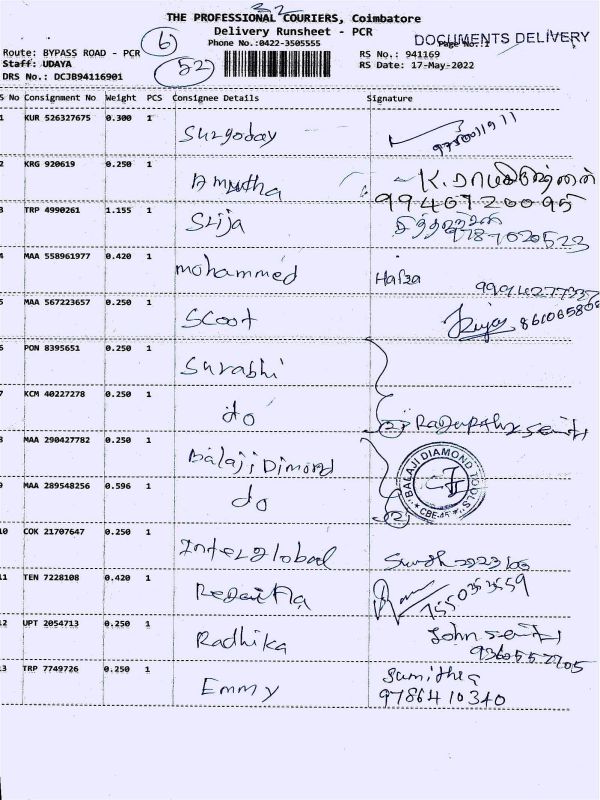 32
THE PROFESSIONAL COURIERS, Coimbatore
Delivery Runsheet - PCR
6
Phone No.:0422-3505555
DOCUMENTS DELIVERY
Page No.:1
Route: BYPASS ROAD - PCR
RS No.: 941169
Staff: UDAYA
52
RS Date: 17-May-2022
DRS No.: DCJB94116901
S No Consignment No Weight PCS Consignee Details Signature
1 KUR 526327675 0.300 1 Surgoday
2 KRG 920619 0.250 1 Amutha
9940720095
3 TRP 4990261 1.155 1 Srija
9787020523
4 MAA 558961977 0.420 1 mohammed
5 MAA 567223657 0.250 1 Scoot
6 PON 8395651 0.250 1 Surabhi
7 KCM 40227278 0.250 1 do
8 MAA 290427782 0.250 1 Balaji Dimond
9 MAA 289548256 0.596 1 do
BALAJI DIAMOND TOOLS
CBE-45
10 COK 21707647 0.250 1 Interglobal
11 TEN 7228108 0.420 1
7550353559
12 UPT 2054713 0.250 1 Radhika
13 TRP 7749726 0.250 1 Emmy Sumithra
9786410340